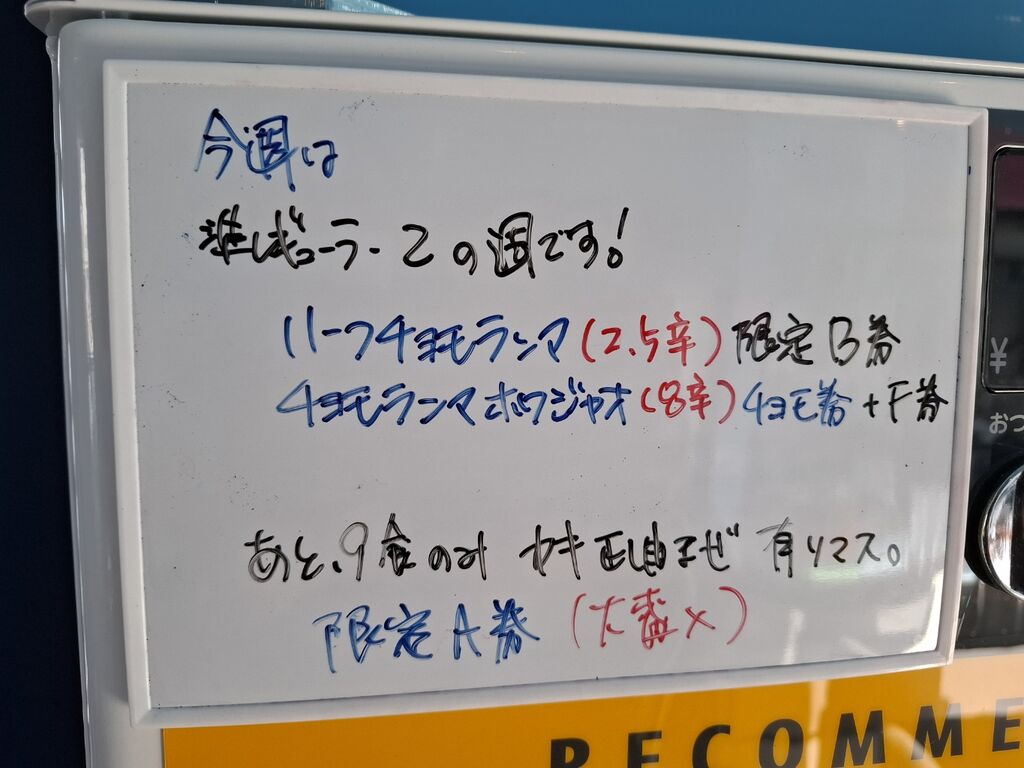 今週は
準レギュラー2の週です!
ハーフチョモランマ(2.5辛)限定B券
チョモランマホワジャオ(8辛)チョモ券+F券
あと、9食のみ カキ 正油まぜ 有リマス。
限定A券 (大盛×)
¥
おつ
RECOMME